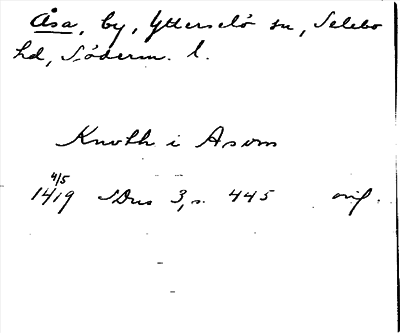 Åsa, by, Ytterselö sn, Selebo
hd, Söderm. l.
Knuth i Asom
4/5
1419 SDns 3, s. 445 orig.